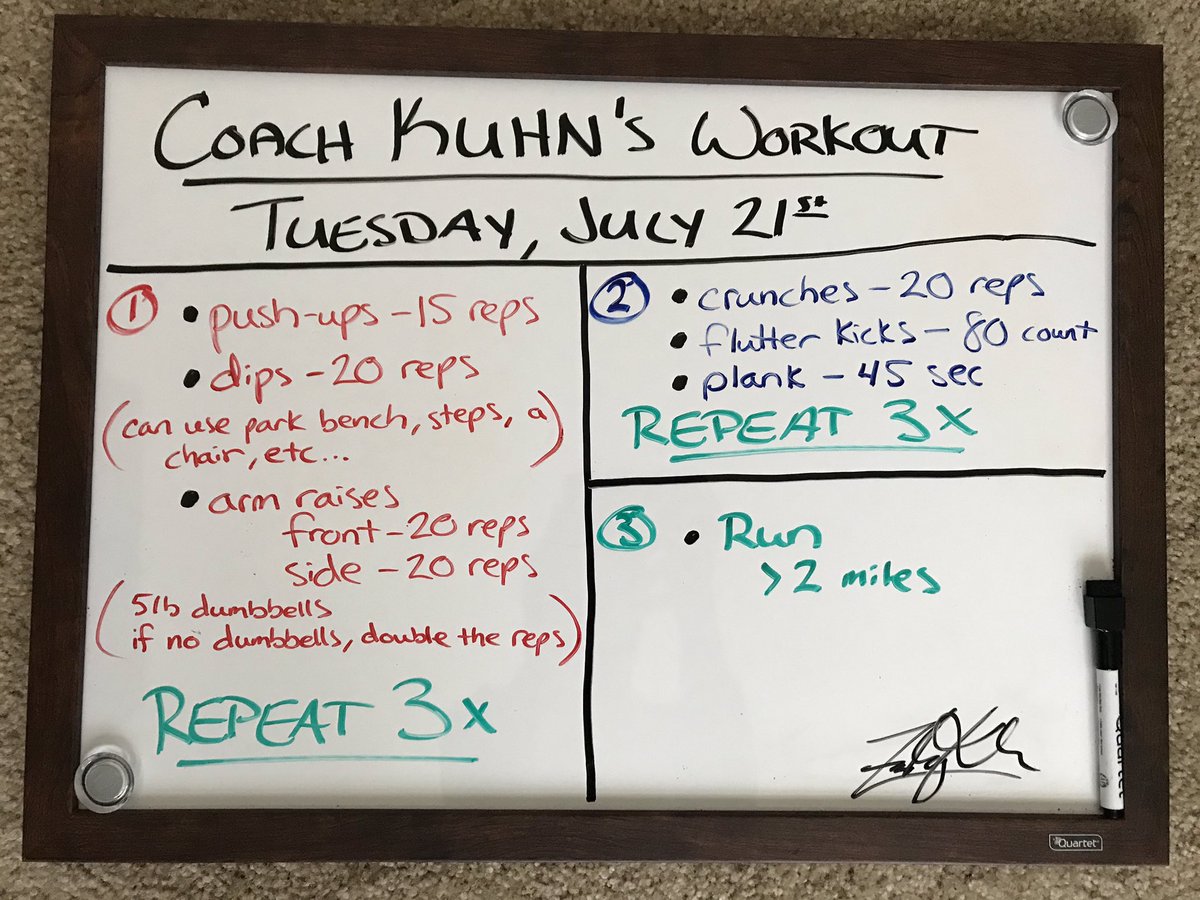 COACH KUHN'S WORKOUT
TUESDAY, JULY 21st
1 • push-ups - 15 reps
• dips - 20 reps
(can use park bench, steps, a
chair, etc...)
• arm raises
front - 20 reps
side - 20 reps
(5lb dumbbells
if no dumbbells, double the reps)
REPEAT 3x
2 • crunches - 20 reps
• flutter kicks - 80 count
• plank - 45 sec
REPEAT 3x
3 • Run
> 2 miles
Quartet
Quartet